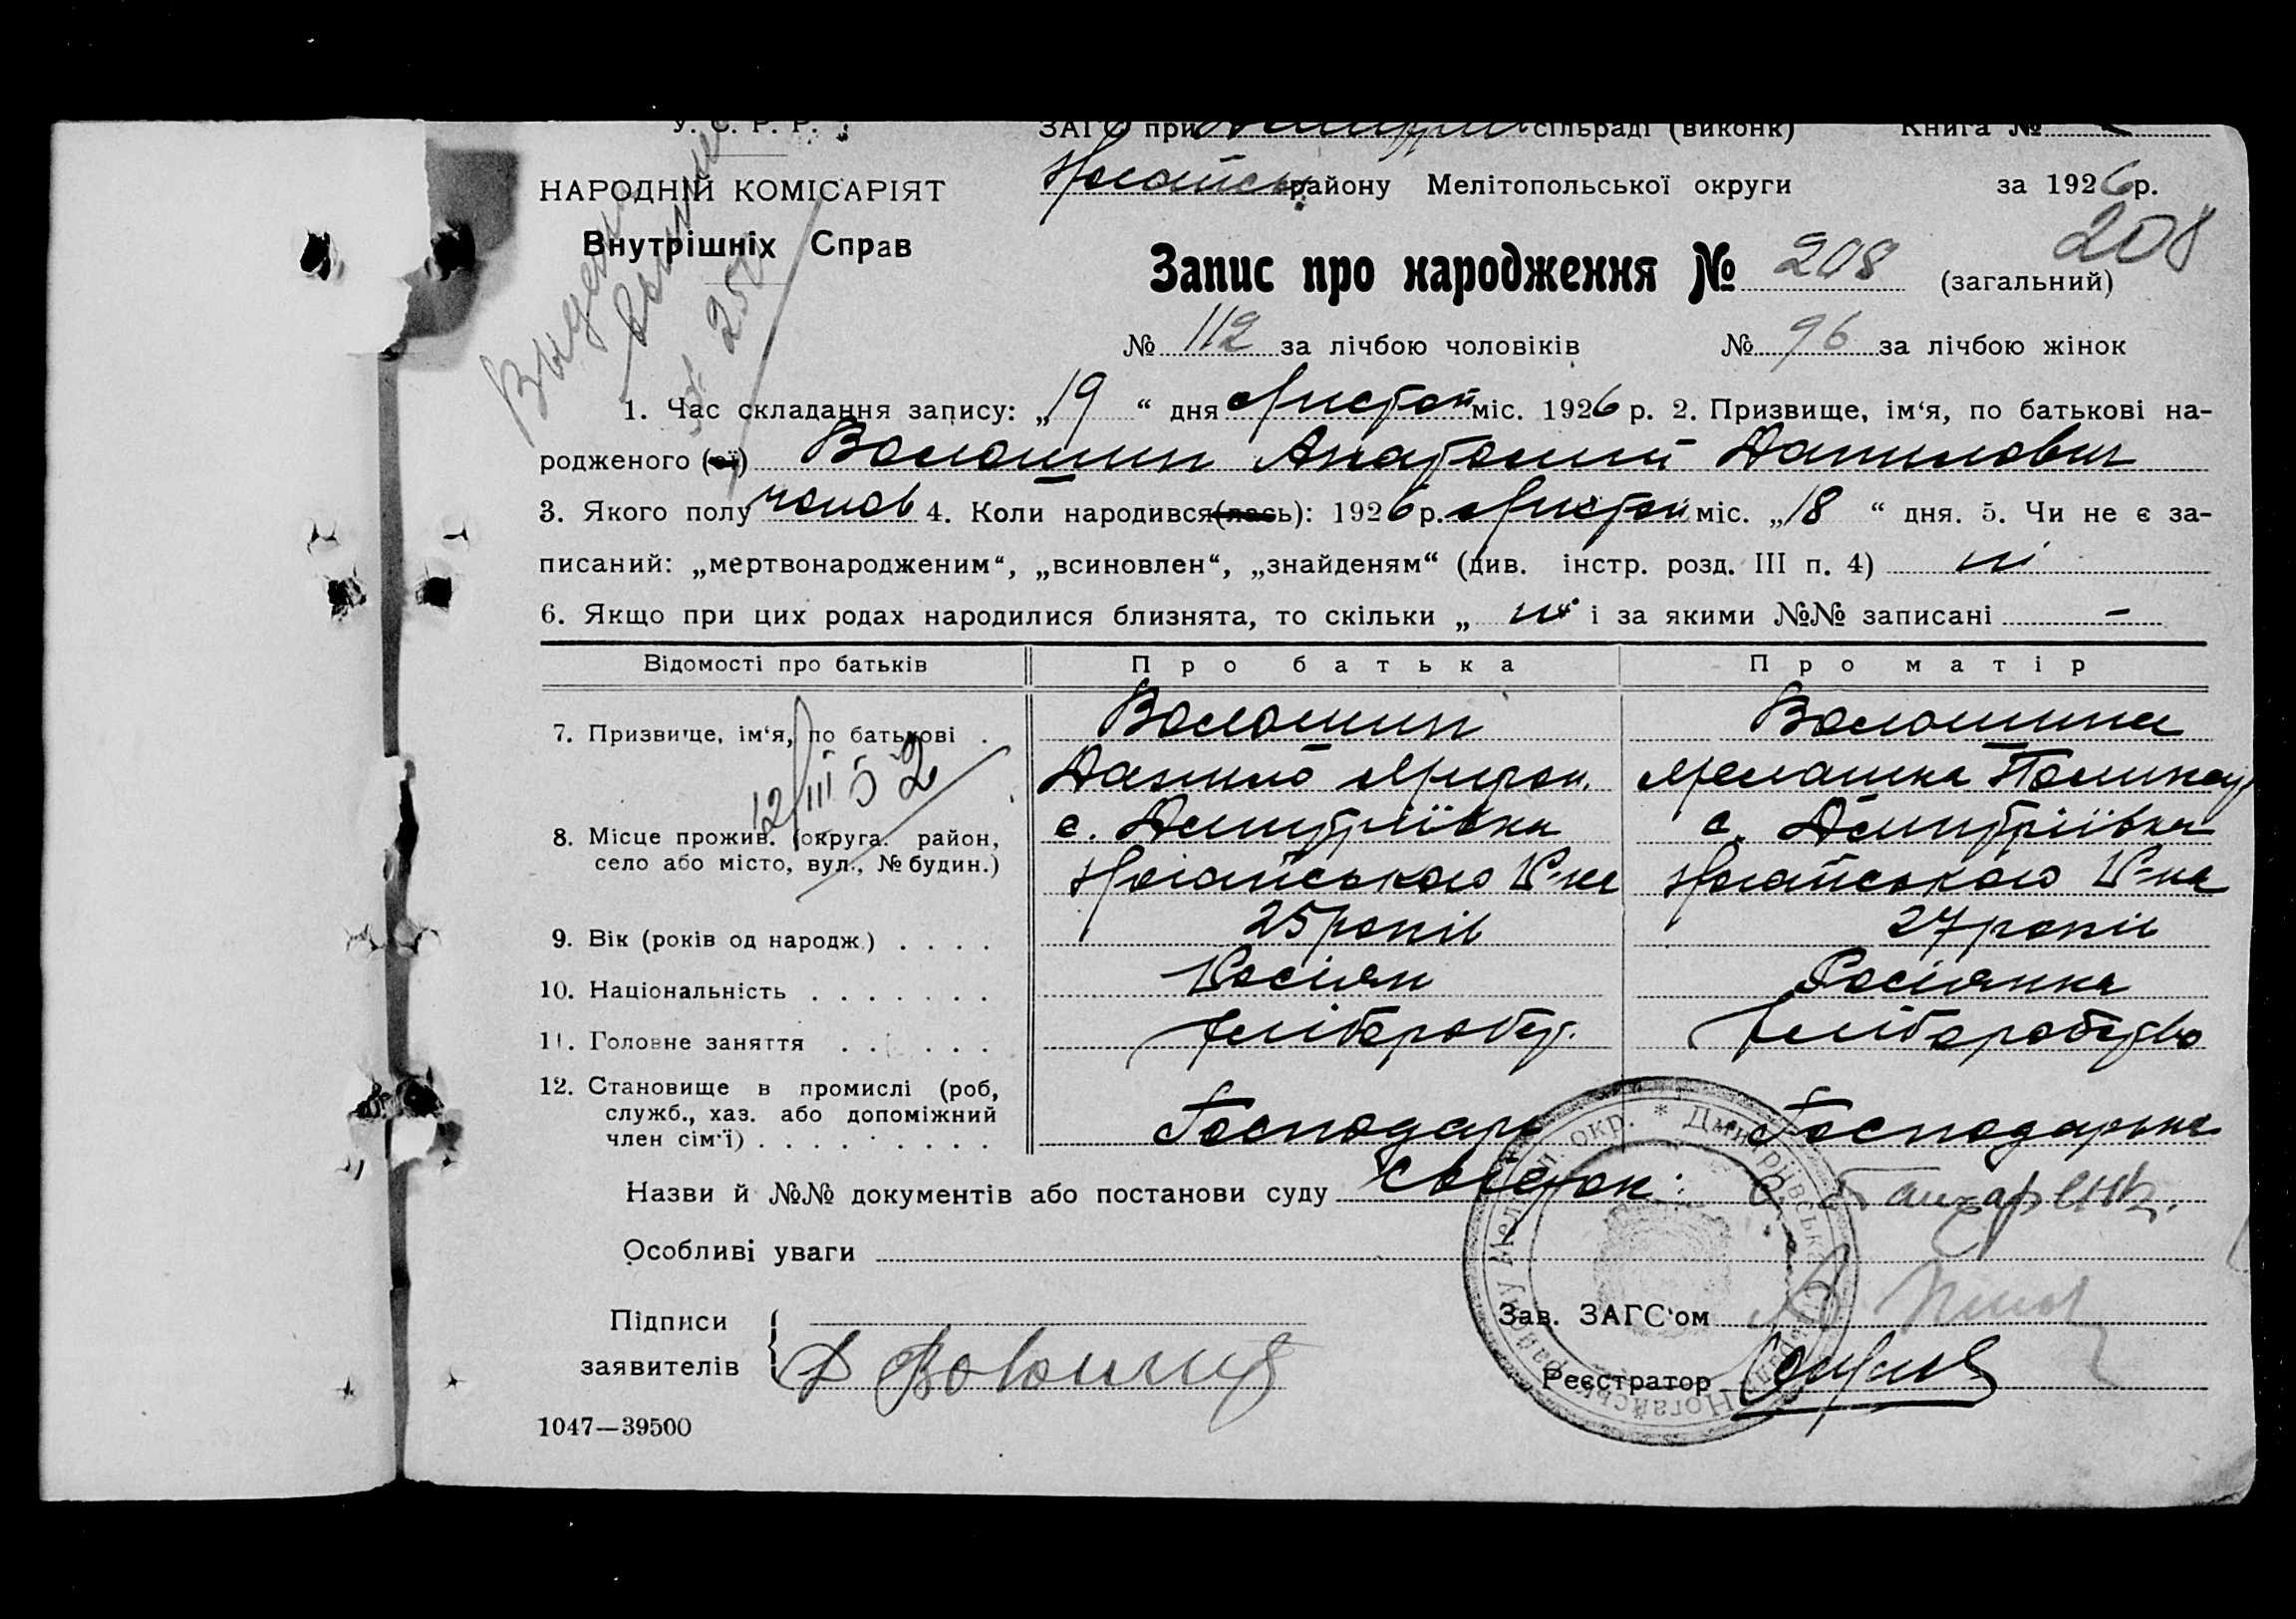 У. С. Р. Р.
ЗАГС при сільраді (виконк) Книга №
НАРОДНІЙ КОМІСАРІЯТ
Внутрішніх Справ
Ногайськ. району Мелітопольської округи за 1926 р.
208
Запис про народження № 208 (загальний)
№ 112 за лічбою чоловіків № 96 за лічбою жінок
1. Час складання запису: „19“ дня Листоп міс. 1926 р. 2. Призвище, ім‘я, по батькові на-
родженого (ої) Волошин Анатолий Данилович
3. Якого полу чолов 4. Коли народився(лась): 1926 р. Листоп міс. „18“ дня. 5. Чи не є за-
писаний: „мертвонародженим“, „всиновлен“, „знайденям“ (див. інстр. розд. III п. 4) ні
6. Якщо при цих родах народилися близнята, то скільки „ ні і за якими №№ записані -
Відомості про батьків Про батька Про матір
7. Призвище, ім‘я, по батькові . Волошин Волошина
Данило Мирон. Мелашка
12/III 52
8. Місце прожив. (округа. район, с. Дмитріївка с. Дмитріївка
село або місто, вул., № будин.) Ногайського Р-на Ногайського Р-на
9. Вік (років од народж.) . . . . 25 років 27 років
10. Національність . . . . . . . Росіян Росіянка
11. Головне заняття . . . . . . Хліборобс. Хліборобство
12. Становище в промислі (роб,
служб., хаз. або допоміжний
член сім‘ї) . . . . . . . . . Господарь Господарька
Назви й №№ документів або постанови суду Свідок:
Особливі уваги
Підписи
заявителів Д Волошин
Зав. ЗАГС‘ом
Реєстратор
1047—39500